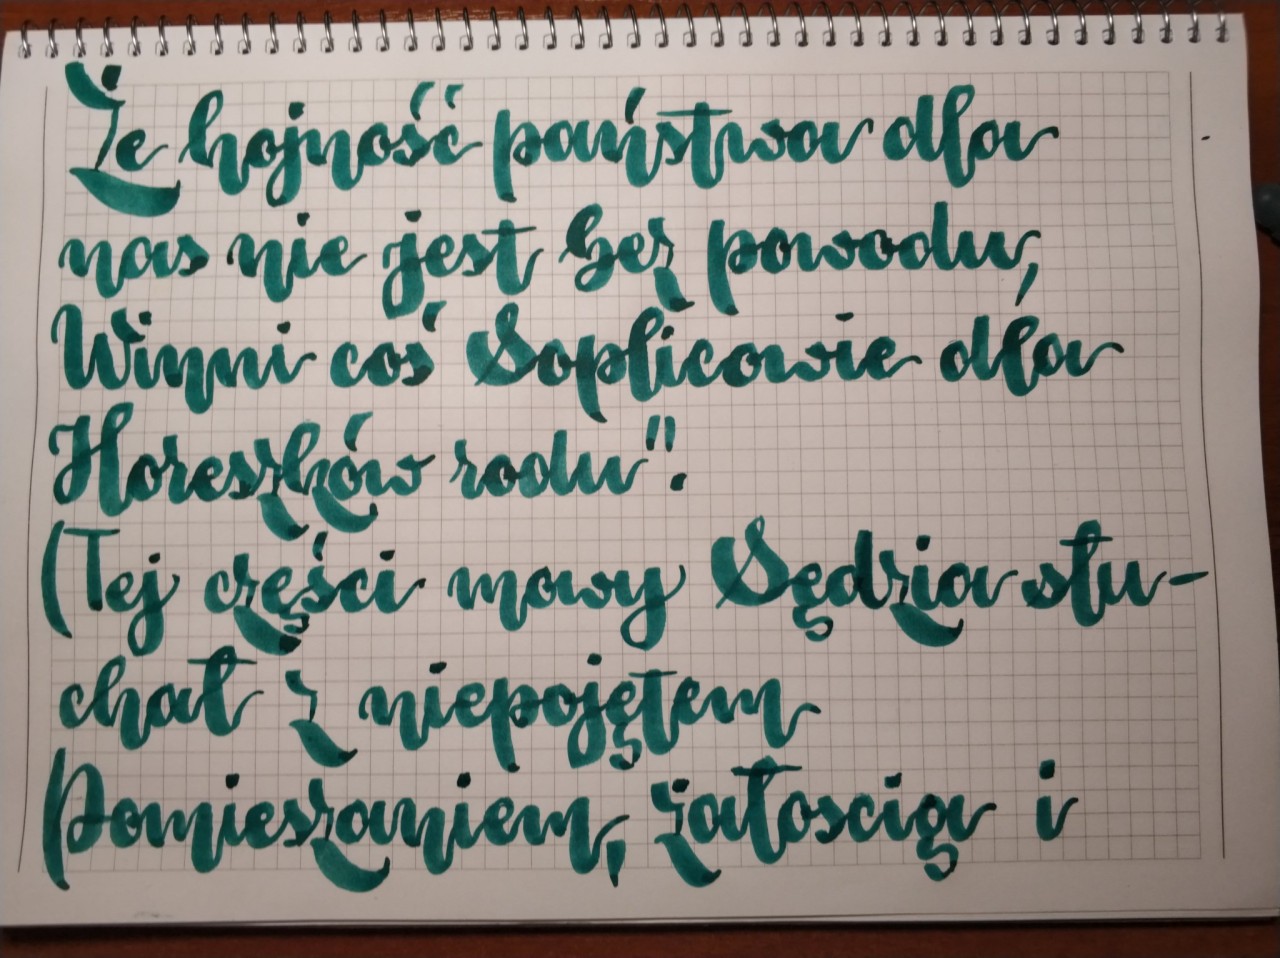 Że hojność państwa dla
nas nie jest bez powodu,
Winni coś Soplicowie dla
Horeszków rodu".
(Tej części mowy Sędzia słu-
chał z niepojętem
Pomieszaniem, załoscią i